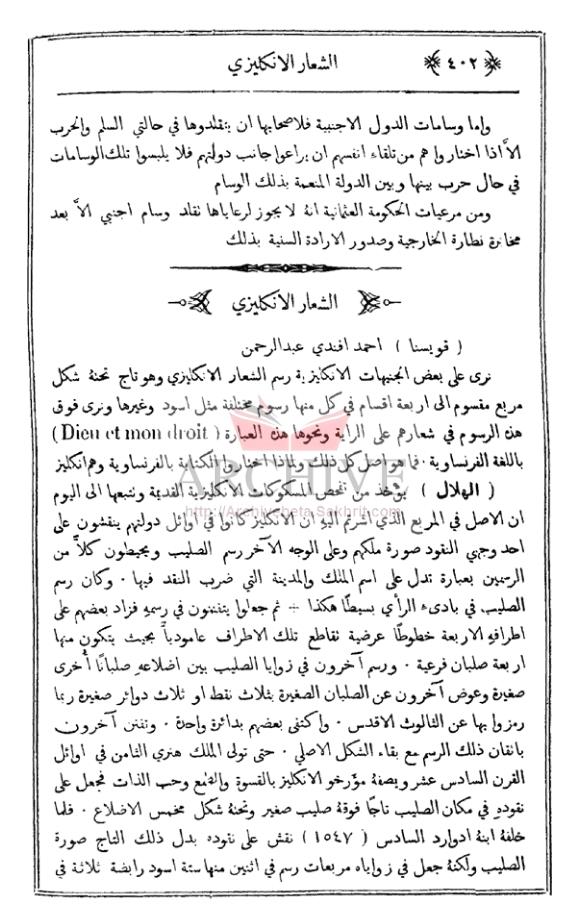 ٤٠٢
الشعار الانكليزي
واما وسامات الدول الاجنبية فلاصحابها ان يتقلدوها في حالتي السلم والحرب
الاَّ اذا اختاروا هم من تلقاء انفسهم ان يراعوا جانب دولتهم فلا يلبسوا تلك الوسامات
في حال حرب بينها وبين الدولة المنعمة بذلك الوسام
ومن مرعيات الحكومة العثمانية انهُ لا يجوز لرعاياها تقلد وسام اجنبي الاَّ بعد
مخابرة نظارة الخارجية وصدور الارادة السنية بذلك
الشعار الانكليزي
( قويسنا ) احمد افندي عبدالرحمن
نرى على بعض الجنيهات الانكليزية رسم الشعار الانكليزي وهو تاج تحتهُ شكل
مربع مقسوم الى اربعة اقسام في كل منها رسوم مختلفة مثل اسود وغيرها ونرى فوق
هذه الرسوم في شعارهم على الراية ونحوها هذه العبارة ( Dieu et mon droit )
باللغة الفرنساوية . فما هو اصل كل ذلك ولماذا اختاروا الكتابة بالفرنساوية وهم انكليز
( الهلال ) يؤخذ من تفحص المسكوكات الانكليزية القديمة وتتبعها الى اليوم
ان الاصل في المربع الذي اشرتم اليهِ ان الانكليز كانوا في اوائل دولتهم ينقشون على
احد وجهي النقود صورة ملكهم وعلى الوجه الآخر رسم الصليب ويحيطون كلاًّ من
الرسمين بعبارة تدل على اسم الملك والمدينة التي ضرب النقد فيها . وكان رسم
الصليب في بادىء الرأي بسيطًا هكذا + ثم جعلوا يتفننون في رسمهِ فزاد بعضهم على
اطرافهِ الاربعة خطوطًا عرضية تقاطع تلك الاطراف عاموديًا بحيث يتكون منها
اربعة صلبان فرعية . ورسم آخرون في زوايا الصليب بين اضلاعهِ صلبانًا أُخرى
صغيرة وعوض آخرون عن الصلبان الصغيرة بثلاث نقط او ثلاث دوائر صغيرة ربما
رمزوا بها عن الثالوث الاقدس . واكتفى بعضهم بدائرة واحدة . وتفنن آخرون
باتقان ذلك الرسم مع بقاء الشكل الاصلي . حتى تولى الملك هنري الثامن في اوائل
القرن السادس عشر ويصفهُ مؤرخو الانكليز بالقسوة والطمع وحب الذات فجعل على
نقودهِ في مكان الصليب تاجًا فوقهُ صليب صغير وتحتهُ شكل مخمس الاضلاع . فلما
خلفهُ ابنهُ ادوارد السادس ( ١٥٤٧ ) نقش على نقوده بدل ذلك التاج صورة
الصليب ولكنهُ جعل في زواياه مربعات رسم في اثنين منها ستة اسود رابضة ثلاثة في
ARCHIVE
http://Archivebeta.Sakhrit.com